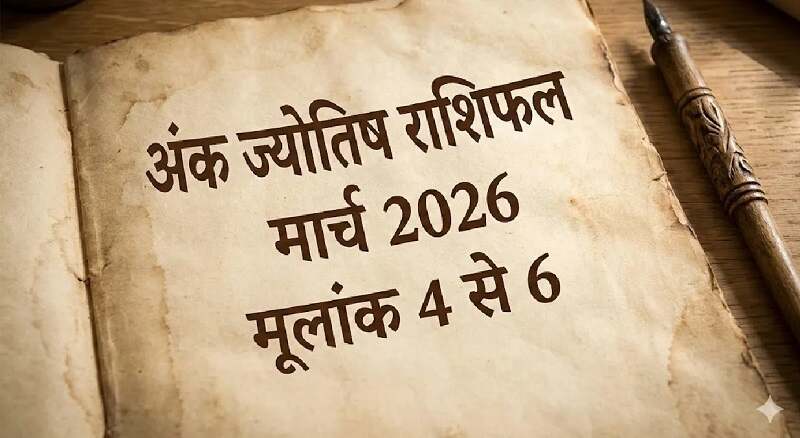 अंक ज्योतिष राशिफल
मार्च 2026
मूलांक 4 से 6